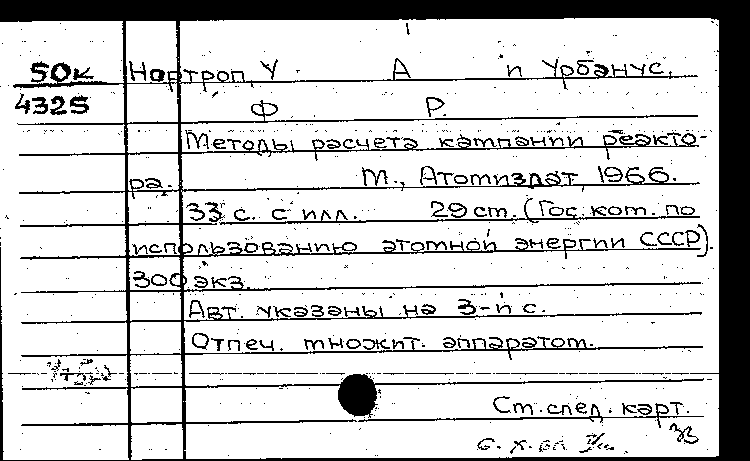 50к Нортроп, У. А. и Урбанус,
4325 Ф. Р.
Методы расчета кампании реакто-
ра. М., Атомиздат, 1966.
33 с. с илл. 29 cm. (Гос. ком. по
использованию атомной энергии СССР).
300 экз.
Авт. указаны на 3-й с.
Отпеч. множит. аппаратом.
Ст. след. карт.
33